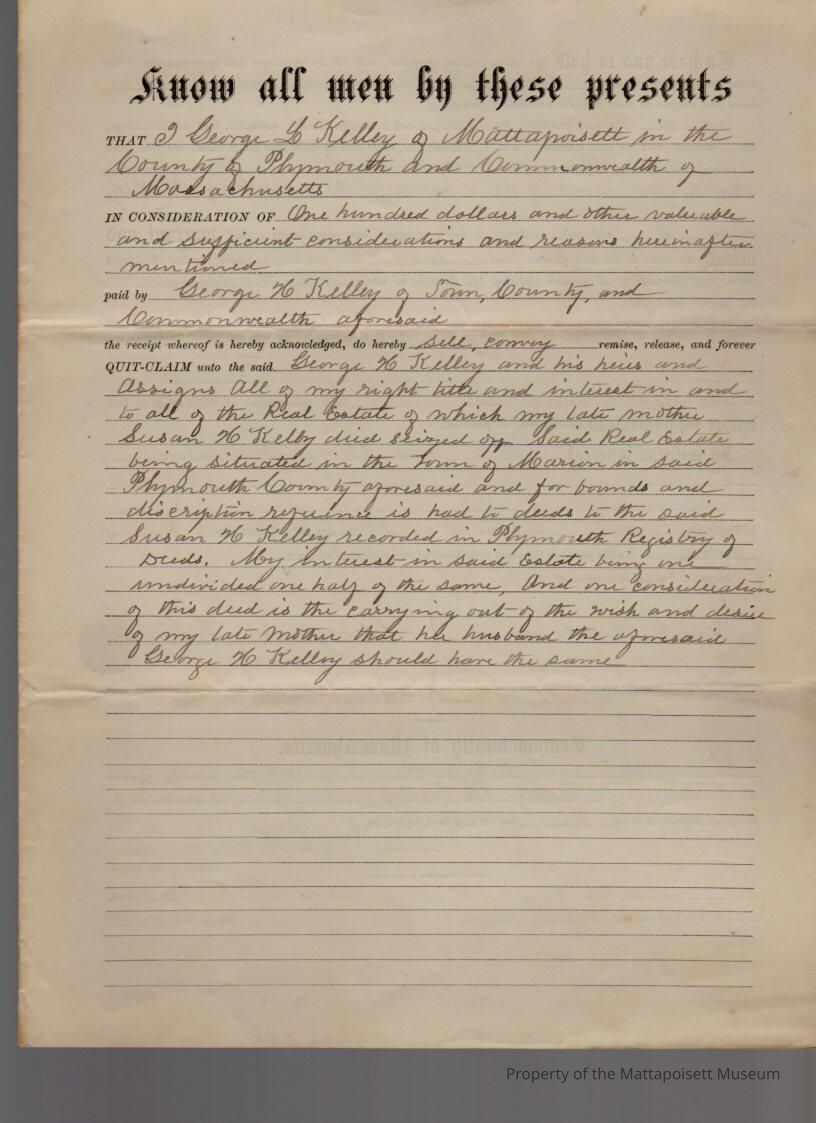 Know all men by these presents
THAT I George L Kelley of Mattapoisett in the
County of Plymouth and Commonwealth of
Massachusetts
IN CONSIDERATION OF One hundred dollars and other valuable
and sufficient considerations and reasons hereinafter
mentioned
paid by George H Kelley of Town, County, and
Commonwealth aforesaid
the receipt whereof is hereby acknowledged, do hereby sell, convey remise, release, and forever
QUIT-CLAIM unto the said George H Kelley and his heirs and
Assigns All of my right title and interest in and
to all of the Real Estate of which my late mother
Susan H Kelley died seized off. Said Real Estate
being situated in the Town of Marion in said
Plymouth County aforesaid and for bounds and
discription refference is had to deeds to the said
Susan H Kelley recorded in Plymouth Registry of
Deeds. My interest in said Estate being one
undivided one half of the same, And one consideration
of this deed is the carrying out of the wish and desire
of my late Mother that her husband the aforesaid
George H Kelley should have the same
Property of the Mattapoisett Museum